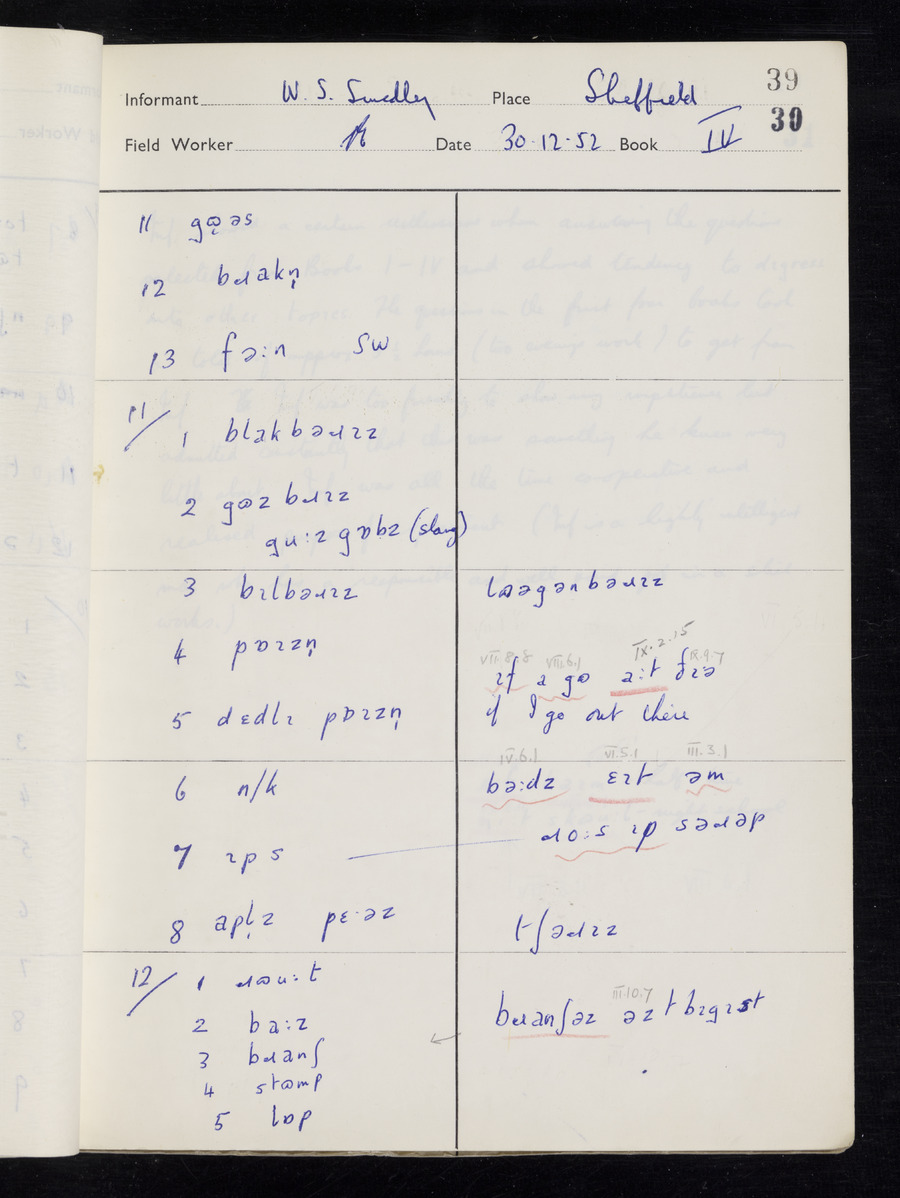 39
Informant W. S. Smedley Place Sheffield
30
Field Worker Date 30·12·52 Book IV
11 gɷ̨əs
12 bɹakn̩
13 fə:n SW
11/ 1 blakbəɹɪz
2 gɷzbɹɪz
gu:zgɒbz (slang)
3 bɪlbəɹɪz lɒəgənbəɹɪz
4 pɒɪzn̩
VII.8.8 VIII.6.1 IX.2.15 IX.9.7
ɪf a go a:t ðɪə
5 dɛdlɪ pɒɪzn̩ if I go out there
IV.6.1 VI.5.1 III.3.1
6 n/k bə:dz ɛɪt əm
7 ɪps ɹo:s ɪp səɹəp
8 apl̩z pɛ·əz tʃəɹɪz
12/ 1 ɹɷu:t
III.10.7
2 ba:z bɹanʃəz əz t bɪgɪst
3 bɹanʃ
4 stɷmp
5 lɒp